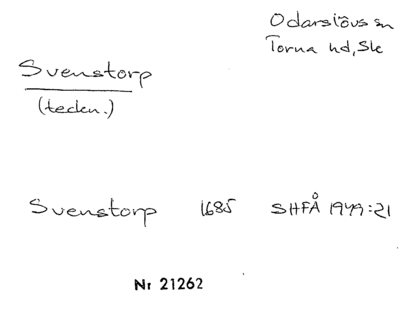 Odarslövs sn
Torna hd, Sk
Svenstorp
(teckn.)
Svenstorp 1685 SHFÅ 1949:21
Nr 21262